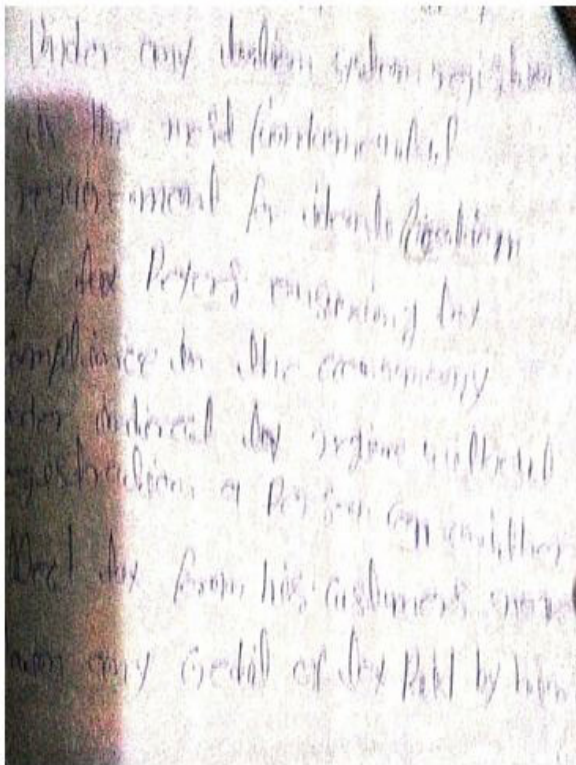 Under any taxation system registration
is the most fundamental
requirement for identification
of tax Payers ensuring tax
compliance in the economy
under indirect tax regime without
registration a Person can neither
collect tax from his customers nor
claim any credit of tax Paid by him